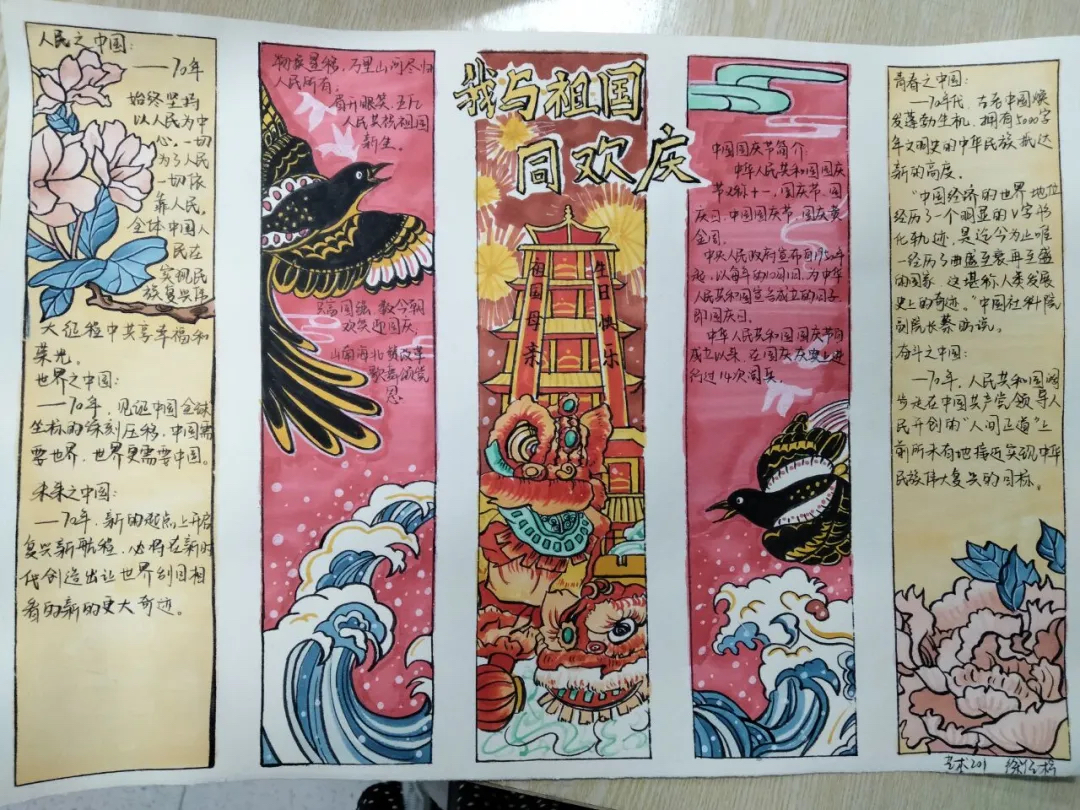 人民之中国:
——70年
始终坚持
以人民为中
心。一切
为了人民
一切依
靠人民。
全体中国人
民在
实现民
族复兴伟
大征程中共享幸福和
荣光。
世界之中国:
——70年,见证中国全球
坐标的深刻压移,中国需
要世界,世界更需要中国。
未来之中国:
——70年,新的起点上开启
复兴新航程,必将在新时
代创造出让世界刮目相
看的新的更大奇迹。
物换星移,万里山河尽归
人民所有。
眉开眼笑,五亿
人民共祝祖国
新生。
富国强,数今朝
欢笑迎国庆
山南海北赞改革
歌舞颂党
恩
我与祖国
同欢庆
祖国母亲
生日快乐
中国国庆节简介:
中华人民共和国国庆
节又称十一,国庆节、国
庆日、中国国庆节,国庆黄
金周。
中央人民政府宣布自1950年
起,以每年的10月1日,为中华
人民共和国宣告成立的日子
即国庆日。
中华人民共和国国庆节自
成立以来,在国庆庆典上进
行过14次阅兵。
青春之中国:
——70年代,古老中国焕
发蓬勃生机,拥有5000字
年文明史的中华民族抵达
新的高度。
"中国经济的世界地位
经历了一个明显的V字书
化轨迹,是迄今为止唯
一经历了由盛至衰再至盛
的国家,这堪称人类发展
史上的奇迹。"中国社科院
副院长蔡昉说。
奋斗之中国:
——70年,人民共和国阔
步走在中国共产党领导人
民开创的"人间正道"上
前所未有地接近实现中华
民族伟大复兴的目标。
艺术201